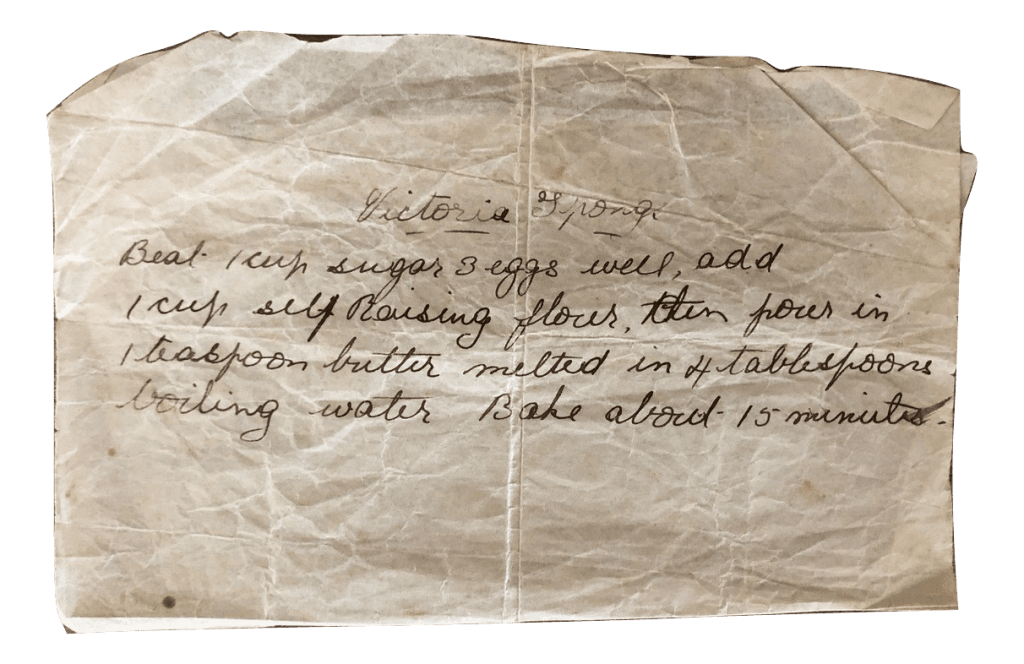 Victoria Spong.
Beat 1 cup sugar 3 eggs well, add
1 cup self Raising flour, then pour in
1 teaspoon butter melted in 4 tablespoons
boiling water Bake about 15 minutes.